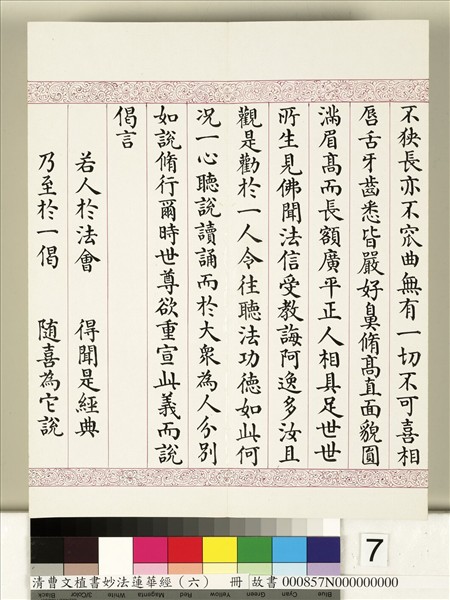 不狹長亦不窊曲無有一切不可喜相
唇舌牙齒悉皆嚴好鼻脩高直面貌圓
滿眉髙而長額廣平正人相具足世世
所生見佛聞法信受教誨阿逸多汝且
觀是勸於一人令往聽法功德如此何
况一心聽說讀誦而於大衆為人分别
如說脩行爾時世尊欲重宣此義而說
偈言
若人於法會 得聞是經典
乃至於一偈 随喜為它說
7
清曹文植書妙法蓮華經（六） 冊 故書 000857N000000000
Blue Cyan Green Yellow Red Magenta White 3/Color Black